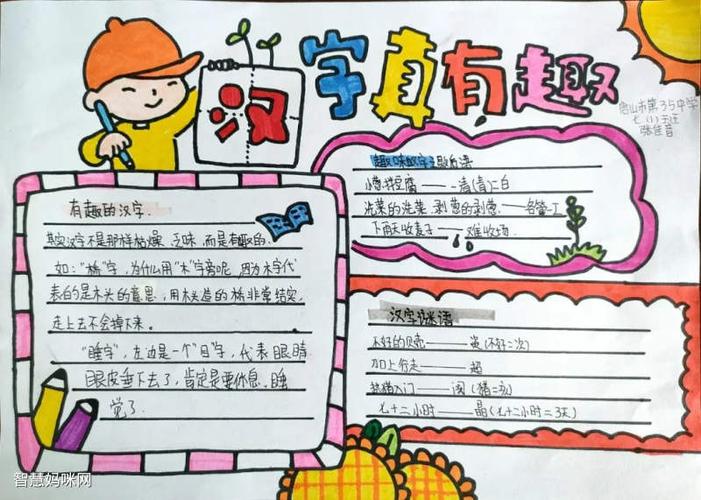 汉字真有趣
唐山市第35中学
七(1)
张佳音
趣味汉字歇后语
小葱拌豆腐——一清(青)二白
洗菜的洗菜,剥葱的剥葱——各管一工
下雨天收麦子——难收场
有趣的汉字.
其实汉字不是那样枯燥、乏味,而是有趣的.
如:"桥"字,为什么用"木"字旁呢,因为木字代
表的是木头的意思,用木头造的桥非常结实,
走上去不会掉下来。
"睡字",左边是一个"目"字,代表眼睛
眼皮垂下去了,肯定是要休息、睡
觉了.
汉字谜语
不好的贝壳——
加上行走——超
入门——阂(猪=亥)
七十二小时——晶(七十二小时=3天)
智慧妈咪网